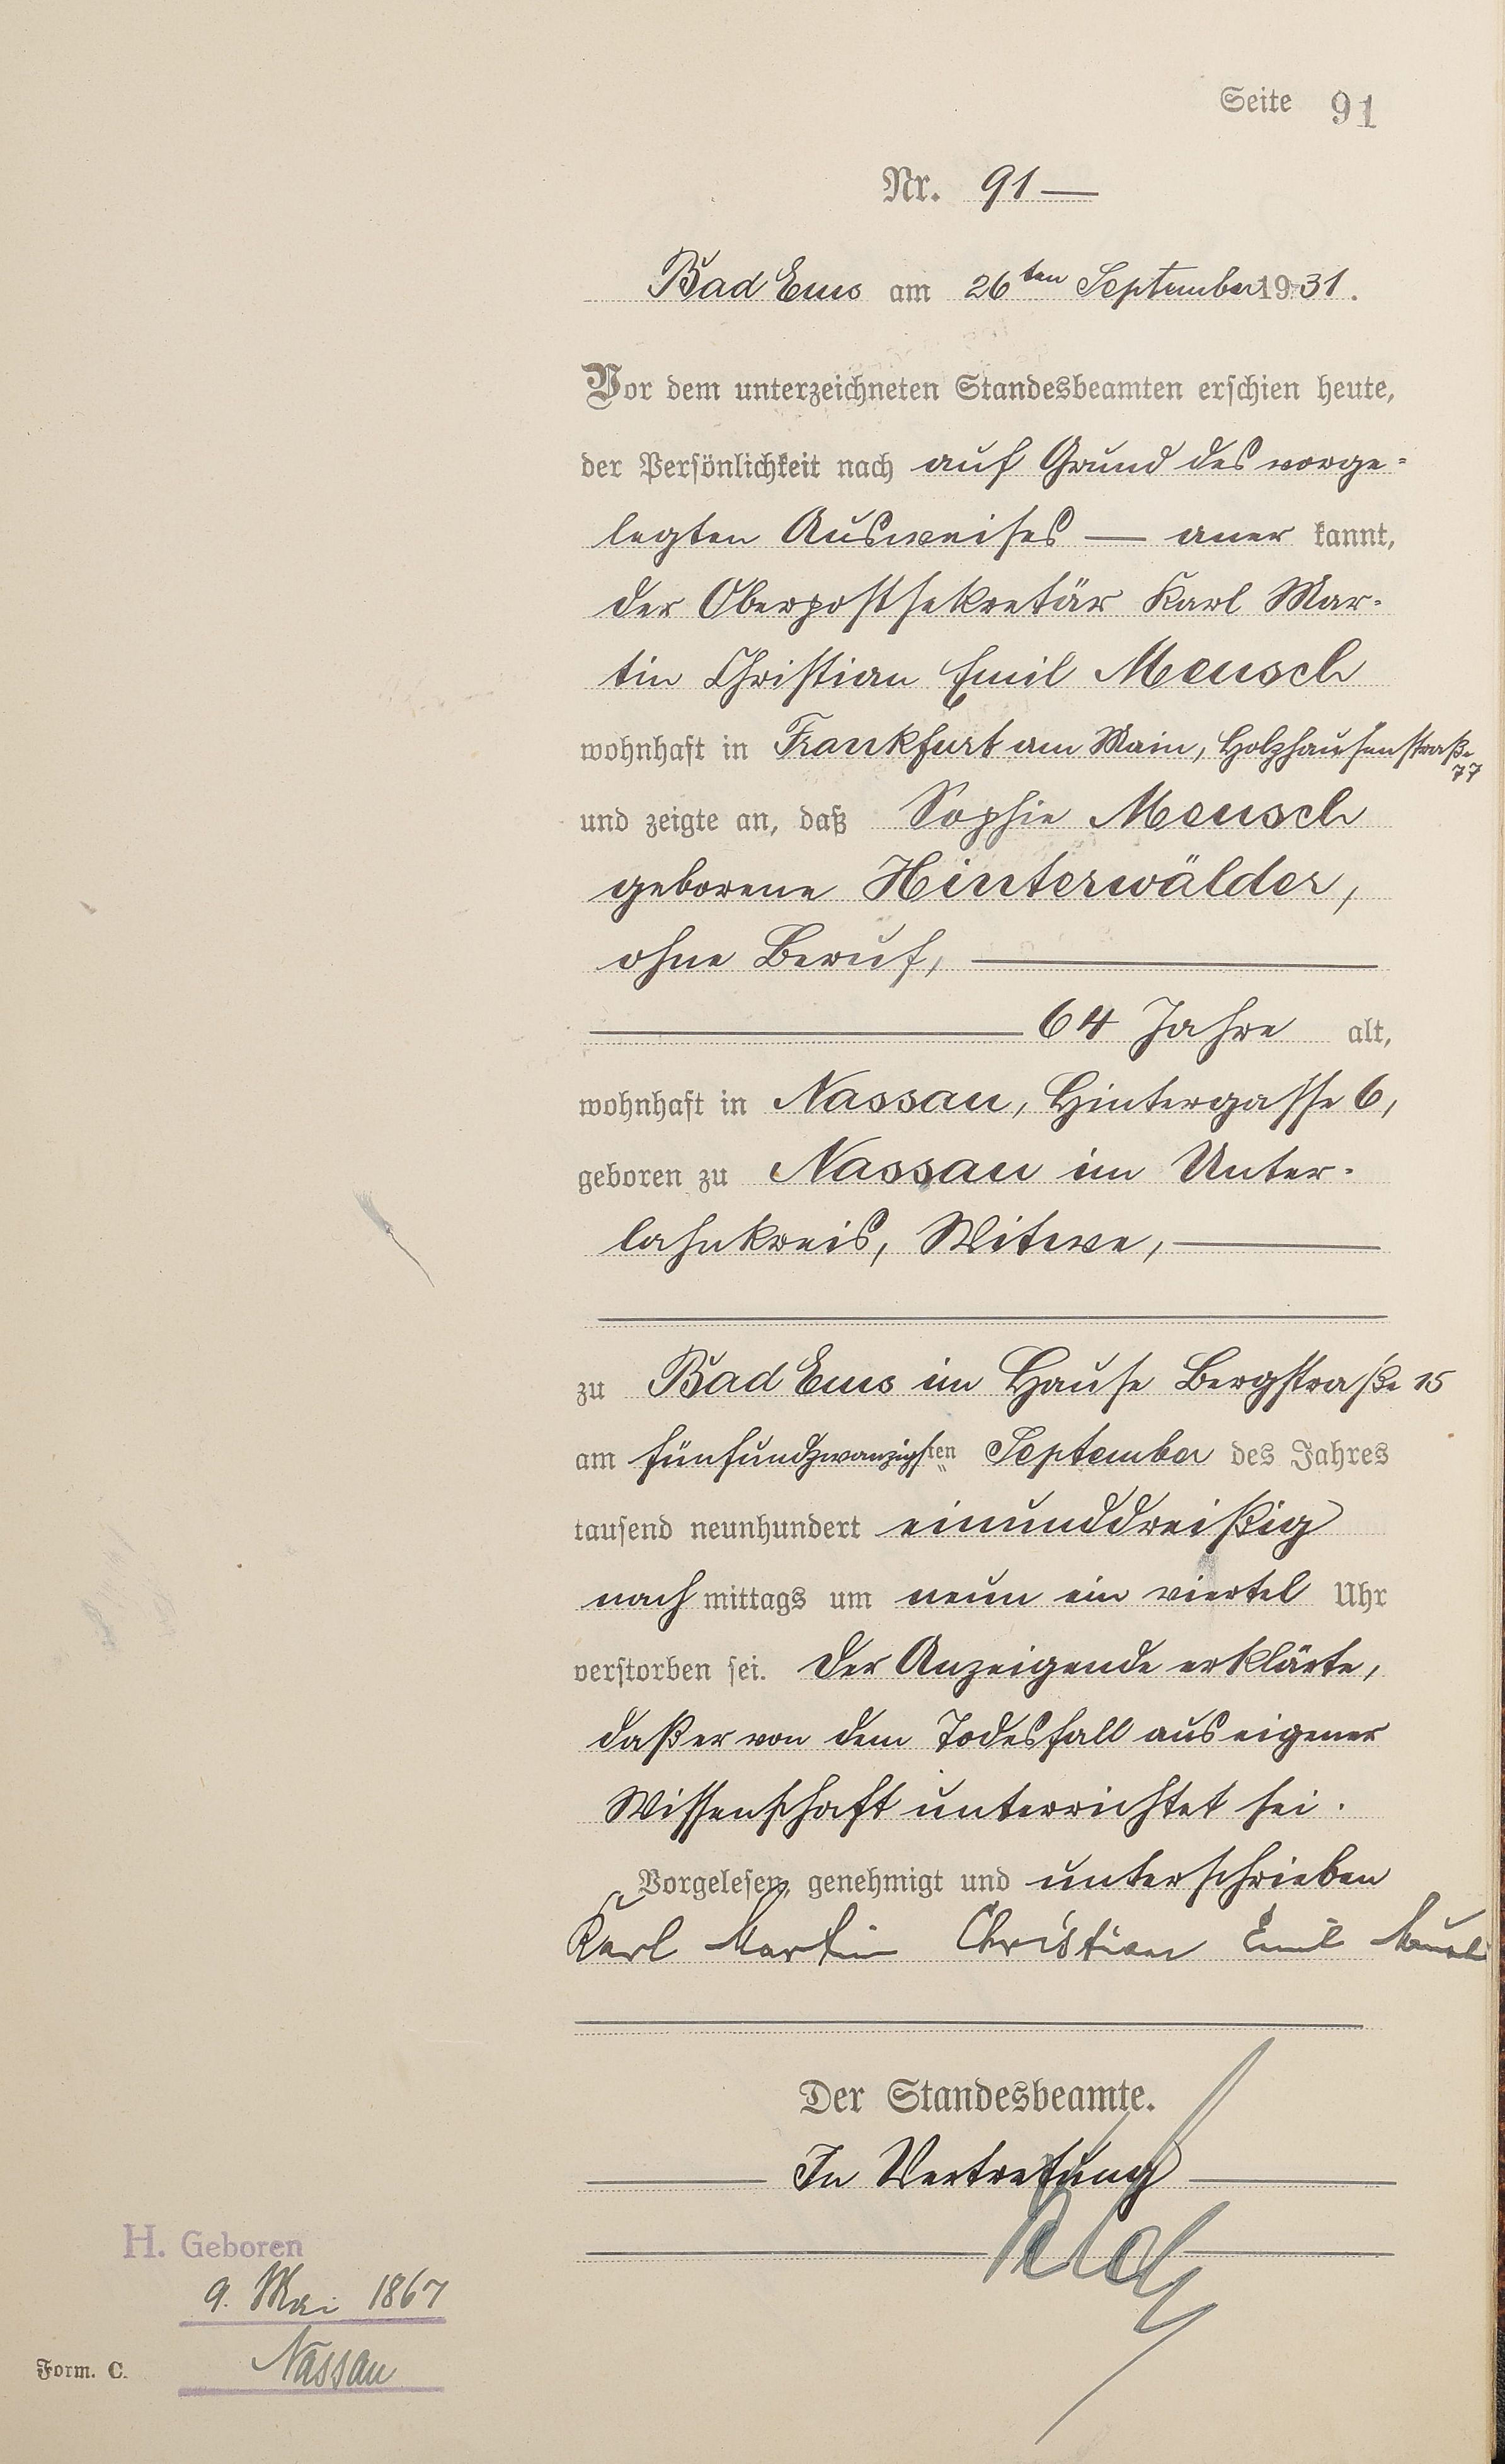 Seite 91
Nr. 91
Bad Ems am 26ten September 1931.
Vor dem unterzeichneten Standesbeamten erschien heute,
der Persönlichkeit nach auf Grund des vorge=
legten Ausweises — aner kannt,
der Oberpostsekretär Karl Mar-
tin Christian Emil Meusch
wohnhaft in Frankfurt am Main, Holzhausenstraße
77
und zeigte an, daß Sophie Meusch
geborene Hinterwälder,
ohne Beruf,
64 Jahre alt,
wohnhaft in Nassau, Hintergasse 6,
geboren zu Nassau im Unter-
lahnkreis, Witwe,
zu Bad Ems im Hause Bergstraße 15
am fünfundzwanzigsten September des Jahres
tausend neunhundert einunddreißig
nach mittags um neun ein viertel Uhr
verstorben sei. Der Anzeigende erklärte,
daß er von dem Todesfall aus eigener
Wissenschaft unterrichtet sei.
Vorgelesen, genehmigt und unterschrieben
Karl Martin Christian Emil Meusch
Der Standesbeamte.
In Vertretung
H. Geboren
9. Mai 1867
Nassau
Form. C.